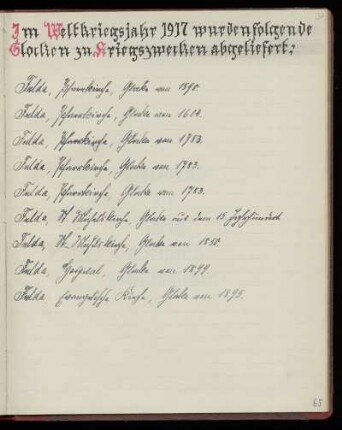 Im Weltkriegsjahr 1917 wurden folgende
Glocken zu Kriegszwecken abgeliefert:
Fulda, Pfarrkirche, Glocke von
Fulda, Pfarrkirche, Glocke von
Fulda, Pfarrkirche, Glocke von 1783.
Fulda, Pfarrkirche, Glocke von 1783.
Fulda, Pfarrkirche, Glocke von 1783.
Fulda, Kirche, Glocke aus dem 15. Jahrhundert
Fulda, Kirche, Glocke von
Fulda, Hospital, Glocke von 1899.
Fulda, evangelische Kirche, Glocke von 1895.
68